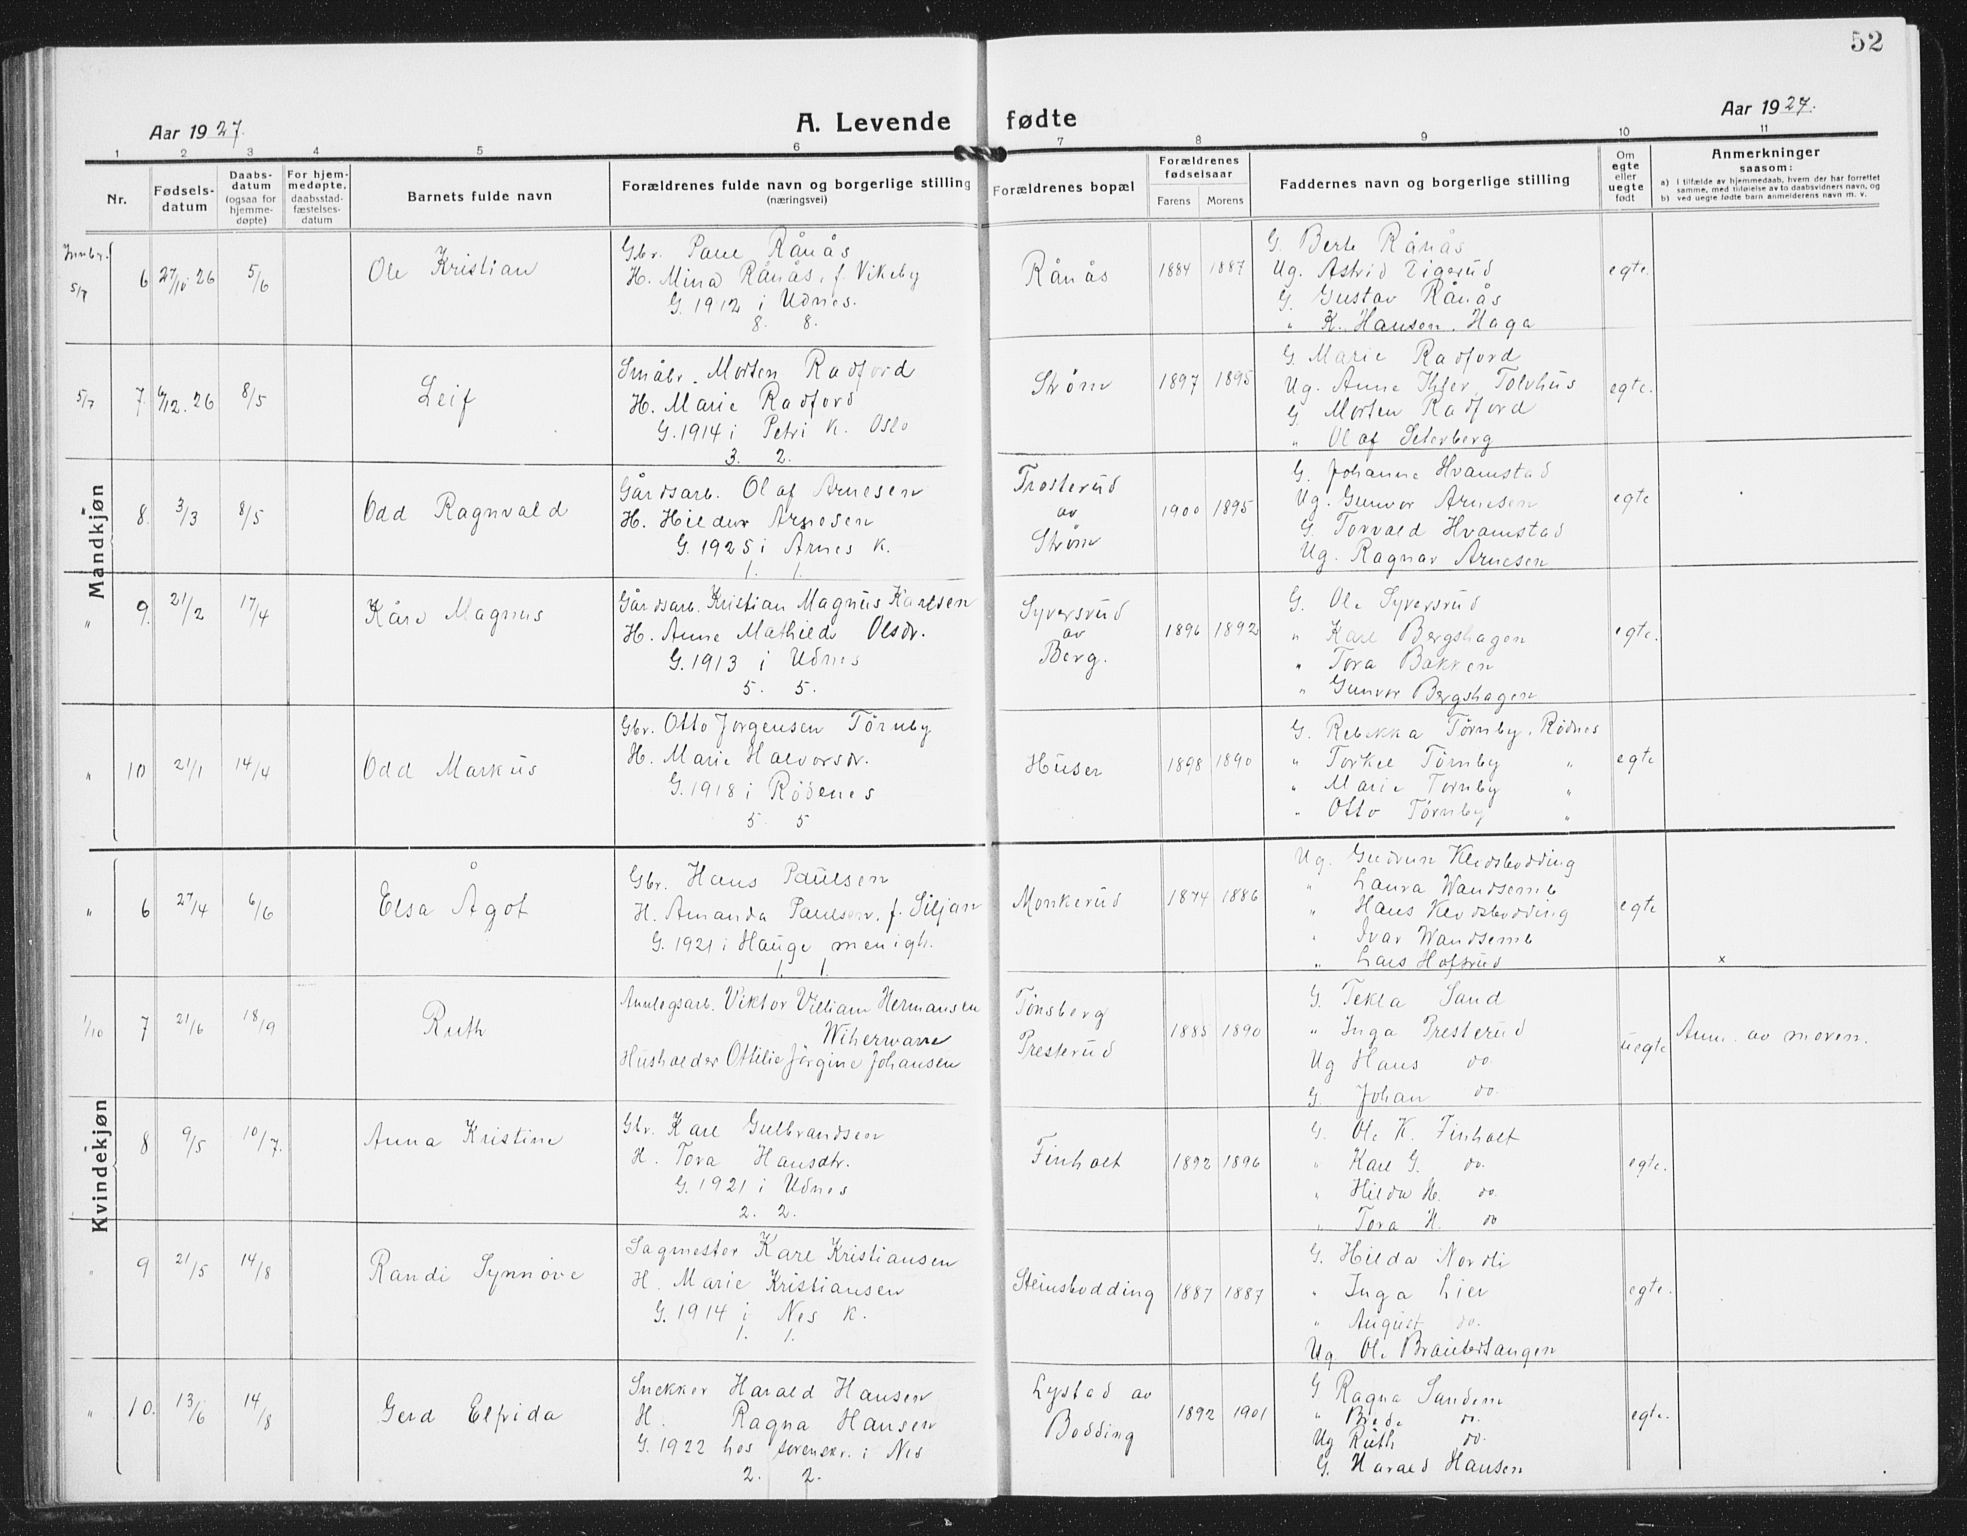 52
Aar 1927.
A. Levende fødte
Aar 1927.
1 2 3 4 5 6 7 8 9 10 11
Nr.
Fødselsdatum
Daabsdatum (ogsaa for hjemmedøpte)
For hjemmedøpte, daabsstadfæstelsesdatum
Barnets fulde navn
Forældrenes fulde navn og borgerlige stilling
(næringsvei)
Forældrenes bopæl
Forældrenes fødselsaar
Farens Morens
Faddernes navn og borgerlige stilling
Om egte eller uegte født
Anmerkninger
saasom:
a) I tilfælde av hjemmedaab, hvem der har forrettet samme, med tilføielse av to daabsvidners navn, og
b) ved uegte fødte barn anmelderens navn m. v.
Mandkjøn
Innbr. 5/7
6 27/10 26 5/6 Ole Kristian
Gbr. Paul Rånås
H. Mina Rånås, f. Vikeby
G. 1912 i Udnes.
8. 8.
Rånås 1884 1887
G. Berte Rånås
Ug. Astrid Tigerud
G. Gustav Rånås
" K. Hansen, Haga
egte.
5/7 7. 6/12. 26 8/5 Leif
Småbr. Morten Radford
H. Marie Radford
G. 1914 i Petri K. Oslo
3. 2.
Strøm 1897 1895
G. Marie Radford
Ug. Anne Ihler Tolvhus
G. Morten Radford
" Olaf Seterberg
egte.
" 8. 3/3 8/5 Odd Ragnvald
Gårdsarb. Olaf Arnesen
H. Hildur Arnesen
G. 1925 i Arnes K.
1. 1.
Trosterud
av
Strøm
1900 1895
G. Johanne Hvamstad
Ug. Gunvor Arnesen
G. Torvald Hvamstad
Ug. Ragnar Arnesen
egte
" 9. 21/2 17/4 Kåre Magnus
Gårdsarb. Kristian Magnus Karlsen
H. Anne Mathilde Olsdr.
G. 1913 i Udnes
5. 5.
Syversrud
av
Berg.
1896 1892
G. Ole Syversrud
" Karl Bergshagen
" Tora Bakken
" Gunvor Bergshagen
egte.
" 10 21/1 14/4 Odd Markus
Gbr. Otto Jørgensen Tørnby
H. Marie Halvorsdr.
G. 1918 i Rødenes
5. 5
Huser 1898 1890
G. Rebekka Tørnby, Rødnes
" Torkel Tørnby "
" Marie Tørnby "
" Otto Tørnby "
egte
Kvindekjøn
" 6 27/4 6/6 Elsa Ågot
Gbr. Hans Paulsen
H. Amanda Paulsen, f. Siljan
G. 1921 i Hauge menigh.
1. 1.
Monkerud 1874 1886
Ug. Gudrun Klodsbodding
" Laura Wandsemb
" Hans Klodsbodding
" Ivar Wandsemb
" Lars Hofsrud
egte
x
1/10 7 21/6 18/9 Ruth
Annlegsarb. Viktor Villiam Hermansen
Husholder Ottilie Jørgine Johansen
Tønsberg
Presterud
1885 1890
G. Tekla Sand
" Inga Presterud
Ug Hans do
G. Johan do.
uegte
Anm. av moren.
" 8 9/5 10/7. Anna Kristine
Gbr. Karl Gulbrandsen
H. Tora Hansdtr.
G. 1921 i Udnes
2. 2.
Finholt 1892 1896
G. Ole K. Finholt
" Karl G. do.
" Hilda H. do.
" Tora H. do
egte.
" 9 21/5 14/8 Randi Synnøve
Sagmester Karl Kristiansen
H. Marie Kristiansen
G. 1914 i Nes K.
1. 1.
Steinsbodding 1887 1887
G. Hilda Nordli
" Inga Lier
" August do.
Ug Ole Brautersangen
egte.
" 10. 13/6 14/8 Gerd Elfrida
Snekker Harald Hansen
H. Ragna Hansen
G. 1922 hos sorenskr. i Nes
2. 2.
Lystad av
Bodding
1892 1901
G Ragna Sundem
" Brede do.
Ug Ruth do.
G. Harald Hansen
egte.